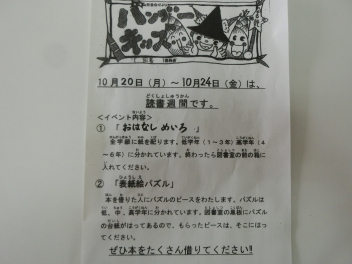 バンブー
キッズ
10月20日（月）～10月24日（金）は、
どくしょしゅうかん
読書週間です。
＜イベント内容＞
① 「おはなしめいろ」
全学級に紙を配ります。低学年（1～3年）高学年（4
～6年）に分かれています。終わったら図書室の前の箱に
入れてください。
② 「表紙絵パズル」
本を借りた人にパズルのピースをわたします。パズルは
低、中、高学年に分かれています。図書室の黒板にパズル
の台紙がはってあるので、もらったピースは、そこにはっ
てください。
ぜひ本をたくさん借りてください!!